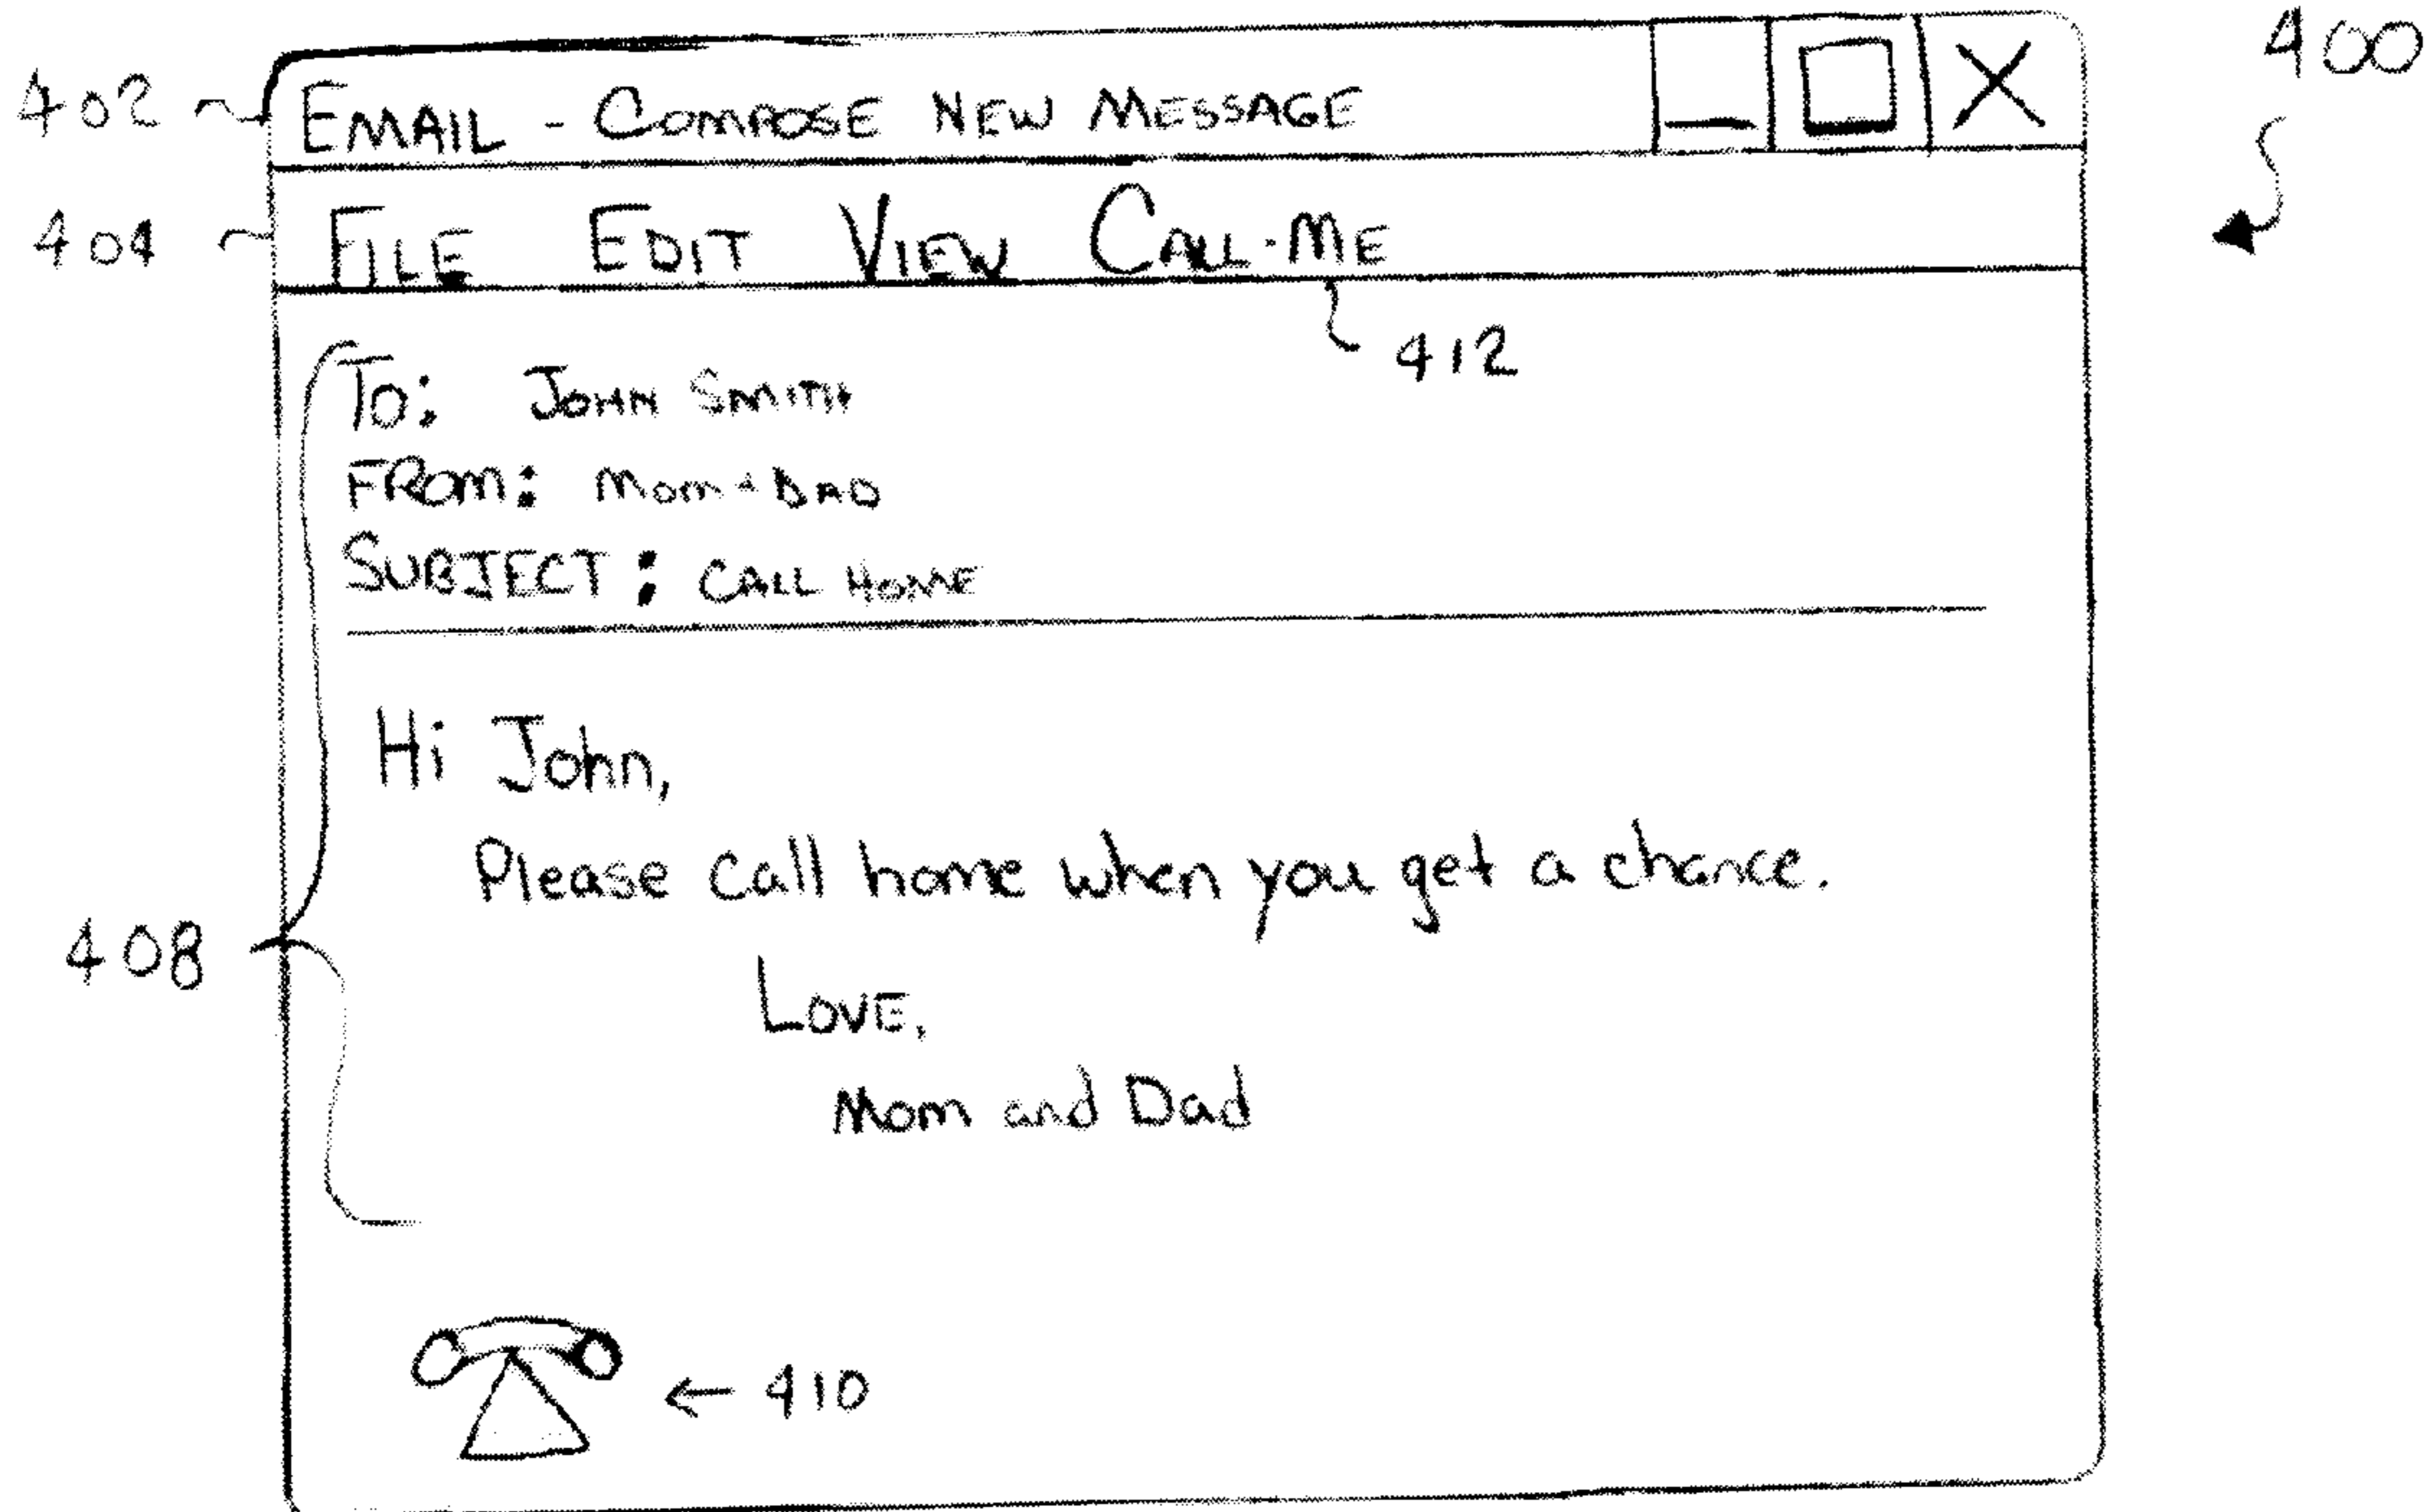 400
402 EMAIL - COMPOSE NEW MESSAGE
404 FILE EDIT VIEW CALL-ME
412
TO: JOHN SMITH
FROM: MOM + DAD
SUBJECT: CALL HOME
Hi John,
Please call home when you get a chance.
408
LOVE,
Mom and Dad
← 410